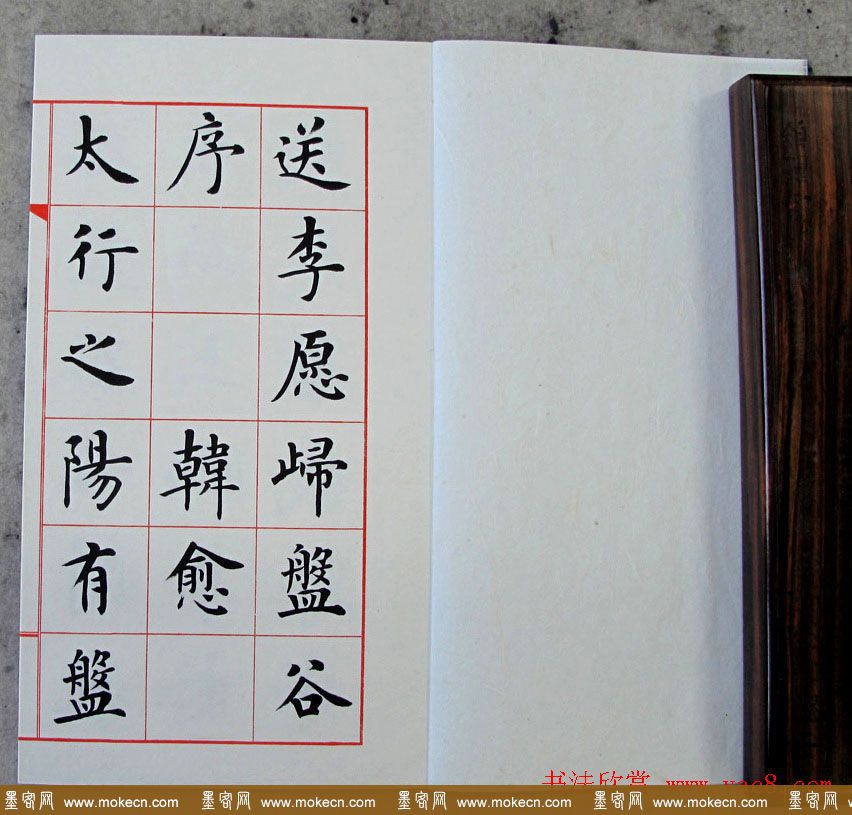 送李愿歸盤谷
序 韓愈
太行之陽有盤
书法欣赏 www.yac8.com
墨客网 www.mokecn.com 墨客网 www.mokecn.com 墨客网 www.mokecn.com 墨客网 www.mokecn.com 墨